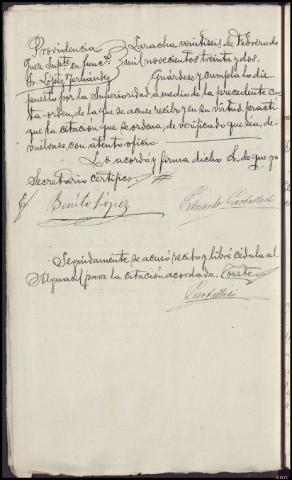 Providencia Laracha, veintiseis de Febrero de
Juez Supte. en funcs. mil novecientos treinta y dos.
Sr. López Fernández Guárdese y cumpla lo dis-
puesto por la Superioridad a medio de la precedente car-
ta-orden de la que se acuse recibo y en su virtud practí-
quese la citación que se ordena, de verificado que sea, de-
vuélvase con atento oficio.
Lo acordó y firma dicho Sr. de que yo
Secretario certifico.
Benito López Eduardo Carballido
Seguidamente se acusó recibo y libró cédula al
Alguacil para la citación acordada. Conste.
Carballido